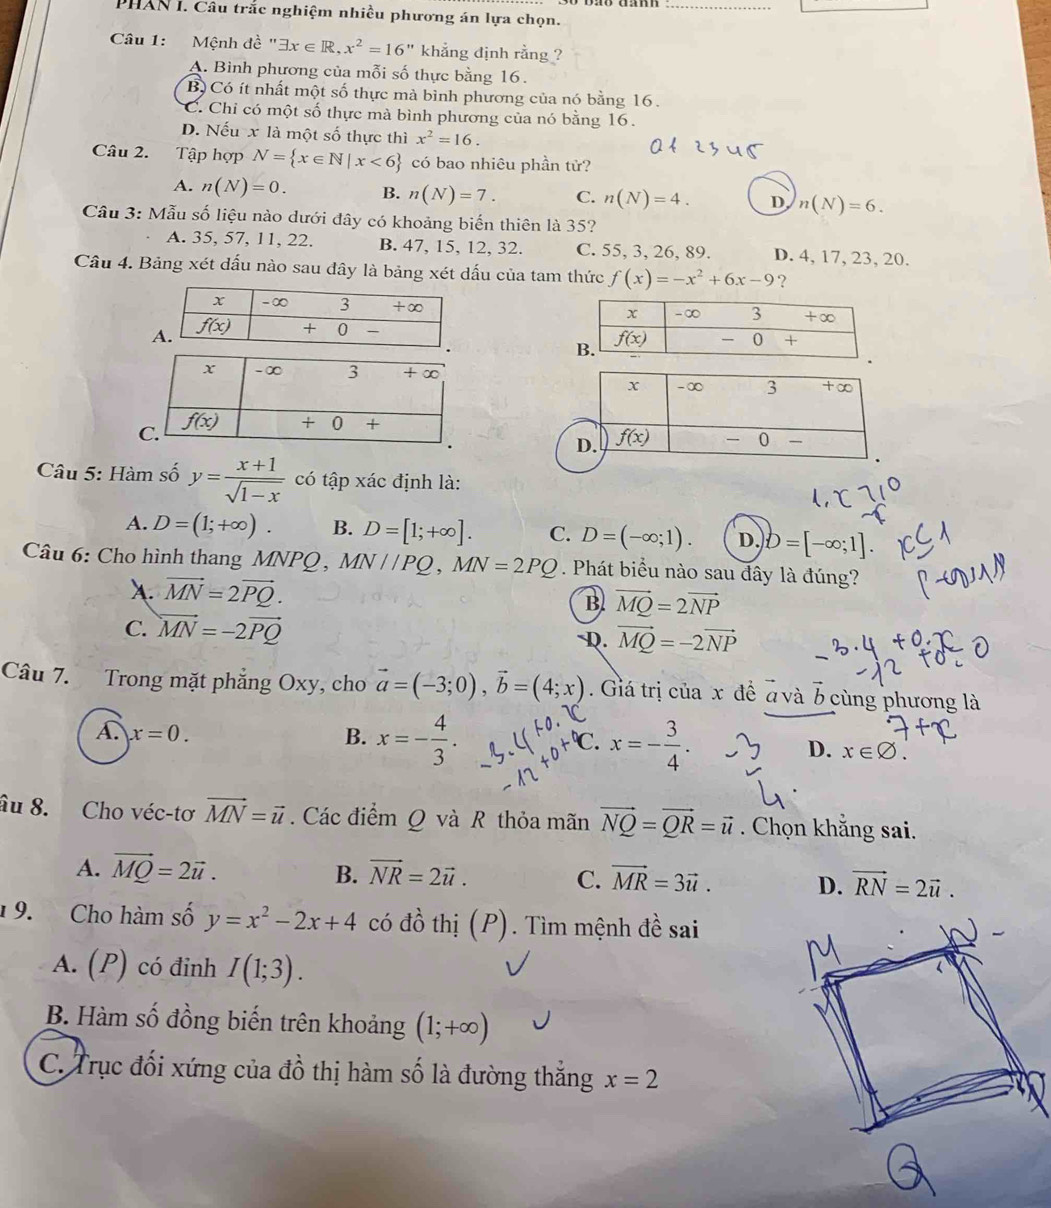 PHẦN I. Câu trắc nghiệm nhiều phương án lựa chọn.
Câu 1: Mệnh đề "∃x ∈ ℝ, x² = 16" khẳng định rằng ?
A. Bình phương của mỗi số thực bằng 16.
B. Có ít nhất một số thực mà bình phương của nó bằng 16.
C. Chỉ có một số thực mà bình phương của nó bằng 16.
D. Nếu x là một số thực thì x² = 16.
Câu 2. Tập hợp N = {x ∈ ℕ | x < 6} có bao nhiêu phần tử?
A. n(N) = 0. B. n(N) = 7. C. n(N) = 4. D. n(N) = 6.
Câu 3: Mẫu số liệu nào dưới đây có khoảng biến thiên là 35?
A. 35, 57, 11, 22. B. 47, 15, 12, 32. C. 55, 3, 26, 89. D. 4, 17, 23, 20.
Câu 4. Bảng xét dấu nào sau đây là bảng xét dấu của tam thức f(x) = -x² + 6x - 9 ?
x -∞ 3 +∞
A. f(x) + 0 - .
x -∞ 3 +∞
B. f(x) - 0 + .
x -∞ 3 +∞
C. f(x) + 0 + .
x -∞ 3 +∞
D. f(x) - 0 - .
Câu 5: Hàm số y = (x+1)/√(1-x) có tập xác định là:
A. D = (1; +∞) . B. D = [1; +∞]. C. D = (-∞; 1). D. D = [-∞; 1].
x ≤ 1
Câu 6: Cho hình thang MNPQ, MN / /PQ, MN = 2PQ. Phát biểu nào sau đây là đúng?
A. \overrightarrow{MN} = 2\overrightarrow{PQ}. B. \overrightarrow{MQ} = 2\overrightarrow{NP}
C. \overrightarrow{MN} = -2\overrightarrow{PQ} D. \overrightarrow{MQ} = -2\overrightarrow{NP}
-3.4 + 0.x = 0
-12 + 0 =
Câu 7. Trong mặt phẳng Oxy, cho \vec{a} = (-3; 0), \vec{b} = (4; x). Giá trị của x để \vec{a} và \vec{b} cùng phương là
7 + x
A. x = 0. B. x = -4/3. C. x = -3/4. D. x ∈ ∅.
-3.4 + 0.x
-12 + 0 +
-3
4
âu 8. Cho véc-tơ \overrightarrow{MN} = \vec{u}. Các điểm Q và R thỏa mãn \overrightarrow{NQ} = \overrightarrow{QR} = \vec{u}. Chọn khẳng sai.
A. \overrightarrow{MQ} = 2\vec{u}. B. \overrightarrow{NR} = 2\vec{u}. C. \overrightarrow{MR} = 3\vec{u}. D. \overrightarrow{RN} = 2\vec{u}.
9. Cho hàm số y = x² - 2x + 4 có đồ thị (P). Tìm mệnh đề sai
A. (P) có đỉnh I(1; 3).
B. Hàm số đồng biến trên khoảng (1; +∞)
C. Trục đối xứng của đồ thị hàm số là đường thẳng x = 2
M N
Q